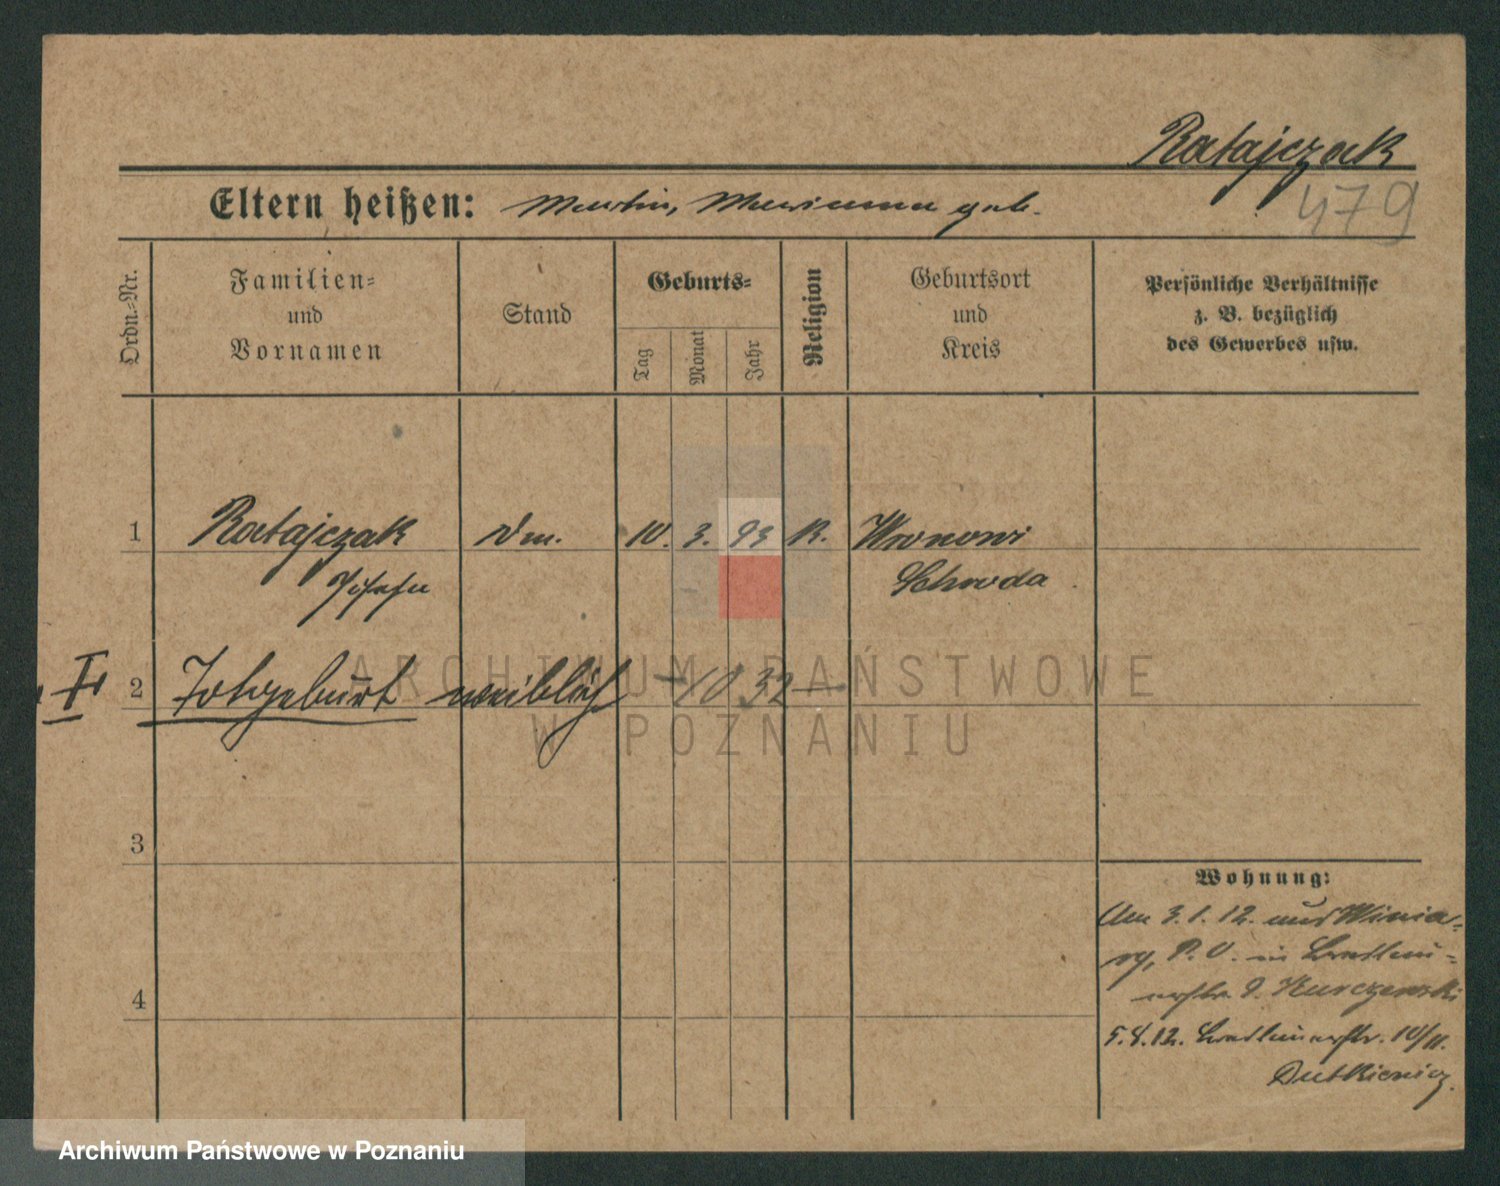 Ratajczak
479
Eltern heißen: Martin, Marianna geb.
Ordn.-Nr.
Familien-
und
Vornamen
Stand
Geburts-
Tag
Monat
Jahr
Religion
Geburtsort
und
Kreis
Persönliche Verhältnisse
z. B. bezüglich
des Gewerbes usw.
1 Ratajczak 10. 3. 93 K.
Josefa Schroda
2 Totgeburt weiblich 10 32
3
Wohnung:
Am 3.1.12. aus Winia-
ry, P. O. in
Kurczewski
4
5.4.12. 10/11.
Dutkiewicz.
ARCHIWUM PAŃSTWOWE
W POZNANIU
Archiwum Państwowe w Poznaniu